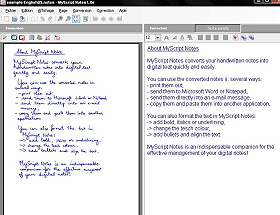 example-English01.notes - MyScript Notes Lite
Fichier Edition Affichage Page Conversion Fenêtre Aide
Conversion
12
About MyScript Notes
MyScript Notes converts your
handwritten notes into digital text
quickly and easily.
You can use the converted notes in
several ways:
- print them out,
- send them to Microsoft Word or Notepad,
- send them directly into an e-mail
message,
- copy them and paste them into another
application.
You can also format the text in
MyScript Notes:
-> add bold, italics or underlining,
-> change the text colour,
-> add bullets and align the text.
MyScript Notes is an indispensable
companion for the effective management
of your digital notes!
About MyScript Notes
MyScript Notes converts your handwritten notes into
digital text quickly and easily.
You can use the converted notes is several ways:
- print them out,
- send them to Microsoft Word or Notepad,
- send them directly into an e-mail message,
- copy them and paste them into another application.
You can also format the text in MyScript Notes:
-> add bold, italics, or underlining,
-> change the tesch colour,
-> add bullets and align the text.
MyScript Notes is an indispensable companion for the
effective management of your digital notes!